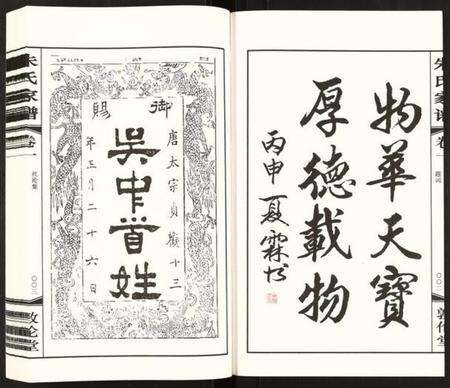 朱氏家譜
卷一
物華天寶
厚德載物
丙申夏霖书
御賜
唐太宗貞觀十三
吳中首姓
年三月二十六日
朱氏家譜
卷一
敦倫堂